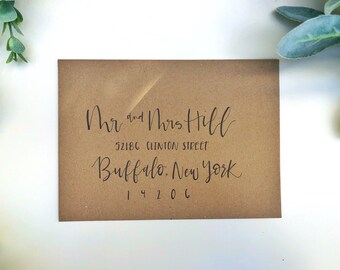 Mr and Mrs Hill
52186 CLINTON STREET
Buffalo, New York
14206